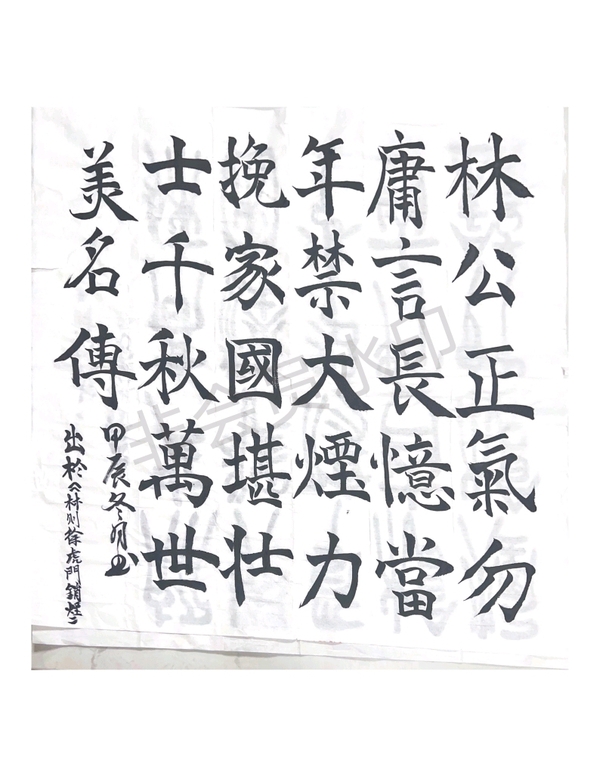 林公正氣勿
庸言長憶當
年禁大煙力
挽家國堪壯
士千秋萬世
美名傳
甲辰冬月书
出於《林则徐虎門銷煙》
非会员水印